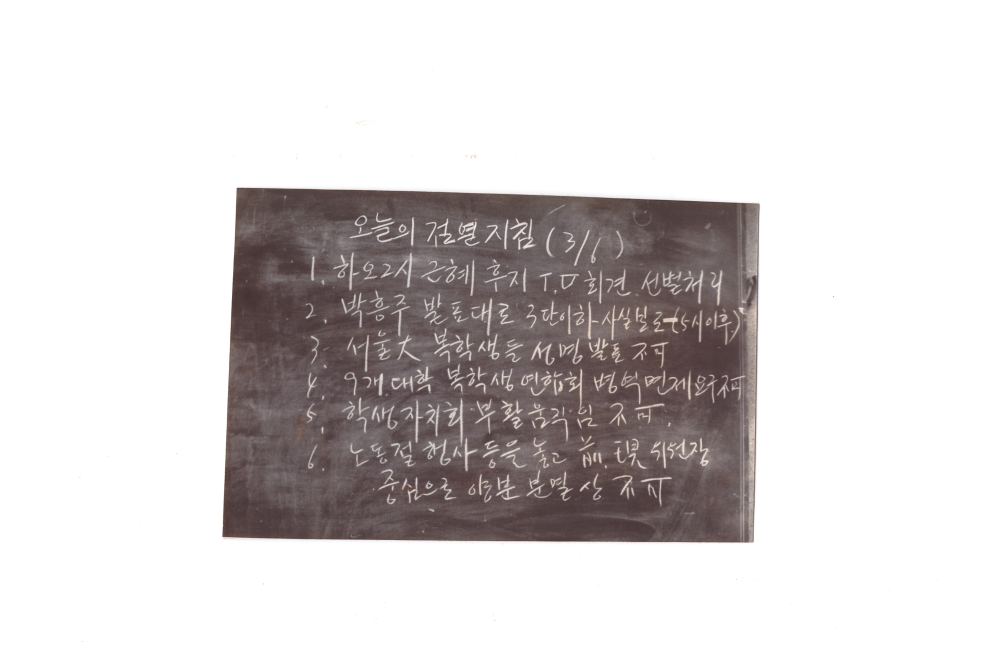 오늘의 검열지침 (3/6)
1. 하오2시 근혜 후지 T.V 회견 선별처리
2. 박흥주 발표대로 3단이하 사실보도 (5시이후)
3. 서울大 복학생들 성명발표 不可
4. 9개대학 복학생연합회 병역면제요구 不可
5. 학생자치회 부활 움직임 不可.
6. 노동절 행사 등을 놓고 前, 現 위원장
중심으로 양분 분열상 不可